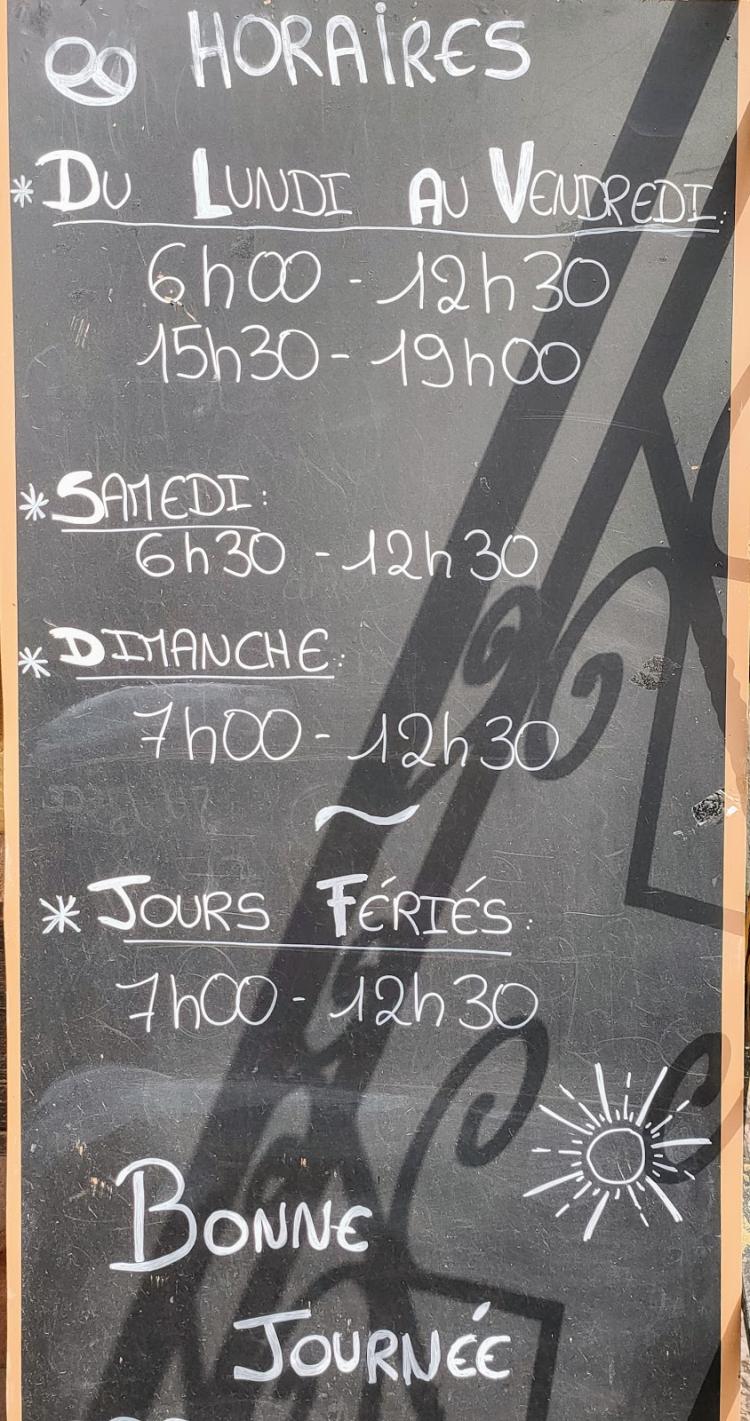 HORAIRES
* DU LUNDI AU VENDREDI:
6h00 - 12h30
15h30 - 19h00
* SAMEDI:
6h30 - 12h30
* DIMANCHE:
7h00 - 12h30
~
* JOURS FÉRIÉS:
7h00 - 12h30
BONNE
JOURNÉE